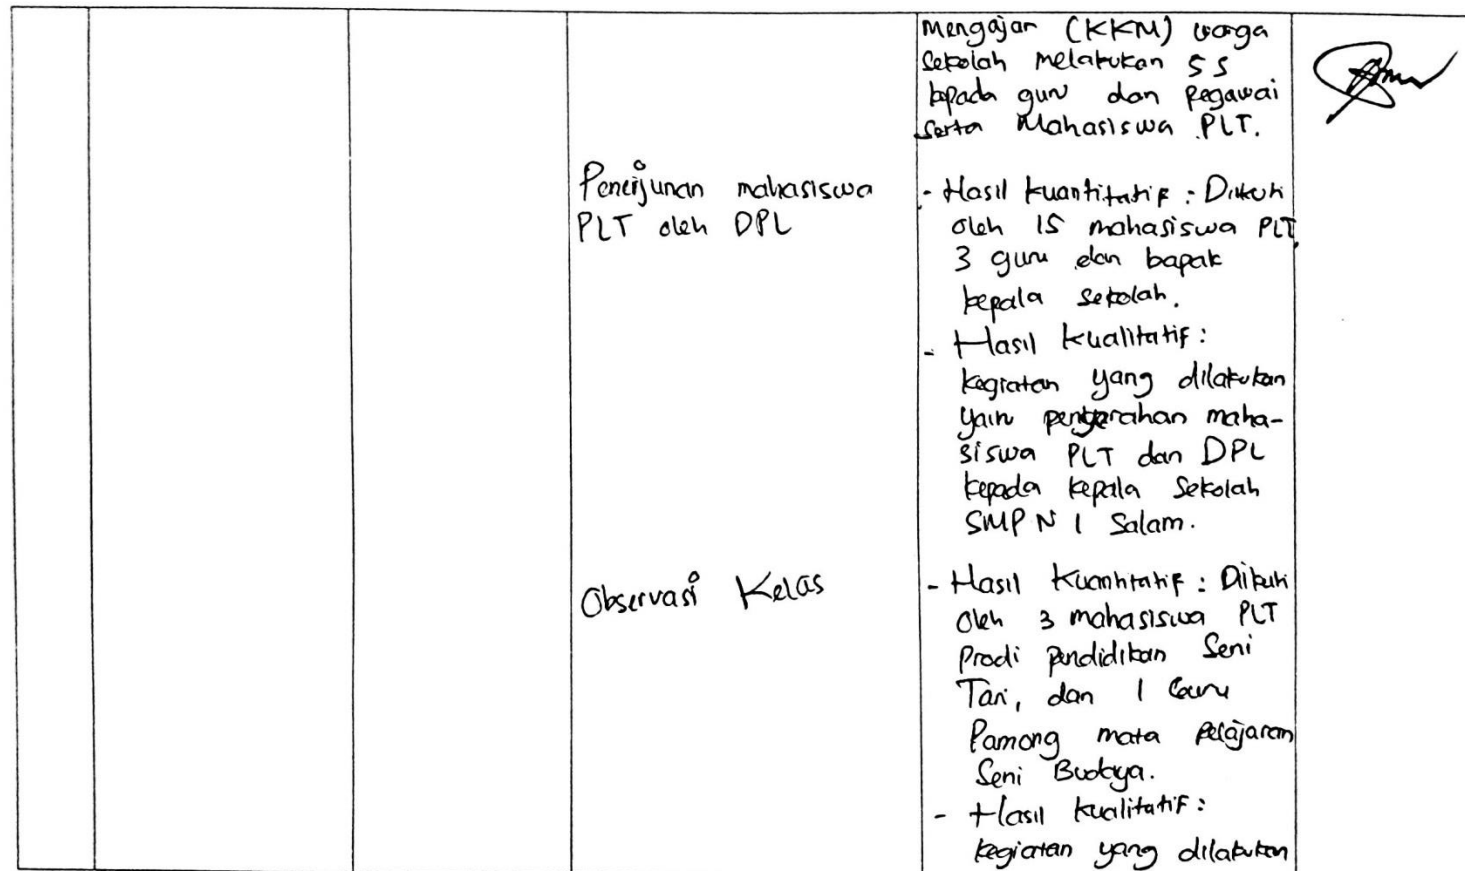 mengajar (KKM) warga
Sekolah melakukan 5 S
kepada guru dan pegawai
serta Mahasiswa PLT.
Penerjunan mahasiswa
PLT oleh DPL
- Hasil kuantitatif : Diikuti
oleh 15 mahasiswa PLT,
3 guru dan bapak
kepala sekolah.
- Hasil kualitatif :
kegiatan yang dilakukan
yaitu pengarahan maha-
siswa PLT dan DPL
kepada kepala Sekolah
SMP N 1 Salam.
Observasi Kelas
- Hasil Kuantitatif : Diikuti
oleh 3 mahasiswa PLT
Prodi pendidikan Seni
Tari, dan 1 Guru
Pamong mata pelajaran
Seni Budaya.
- Hasil kualitatif :
kegiatan yang dilakukan